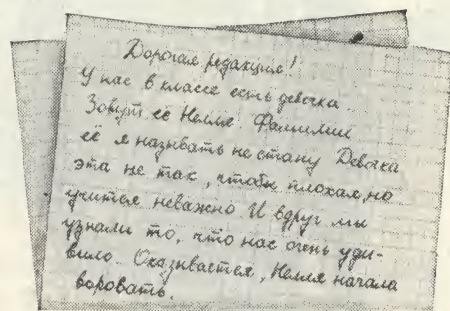 Дорогая редакция!
У нас в классе есть девочка
Зовут её Нелля. Фамилии
её я называть не стану Девочка
эта не так, чтобы плохая, но
учится неважно И вдруг мы
узнали то, что нас очень уди-
вило. Оказывается, Нелля начала
воровать.